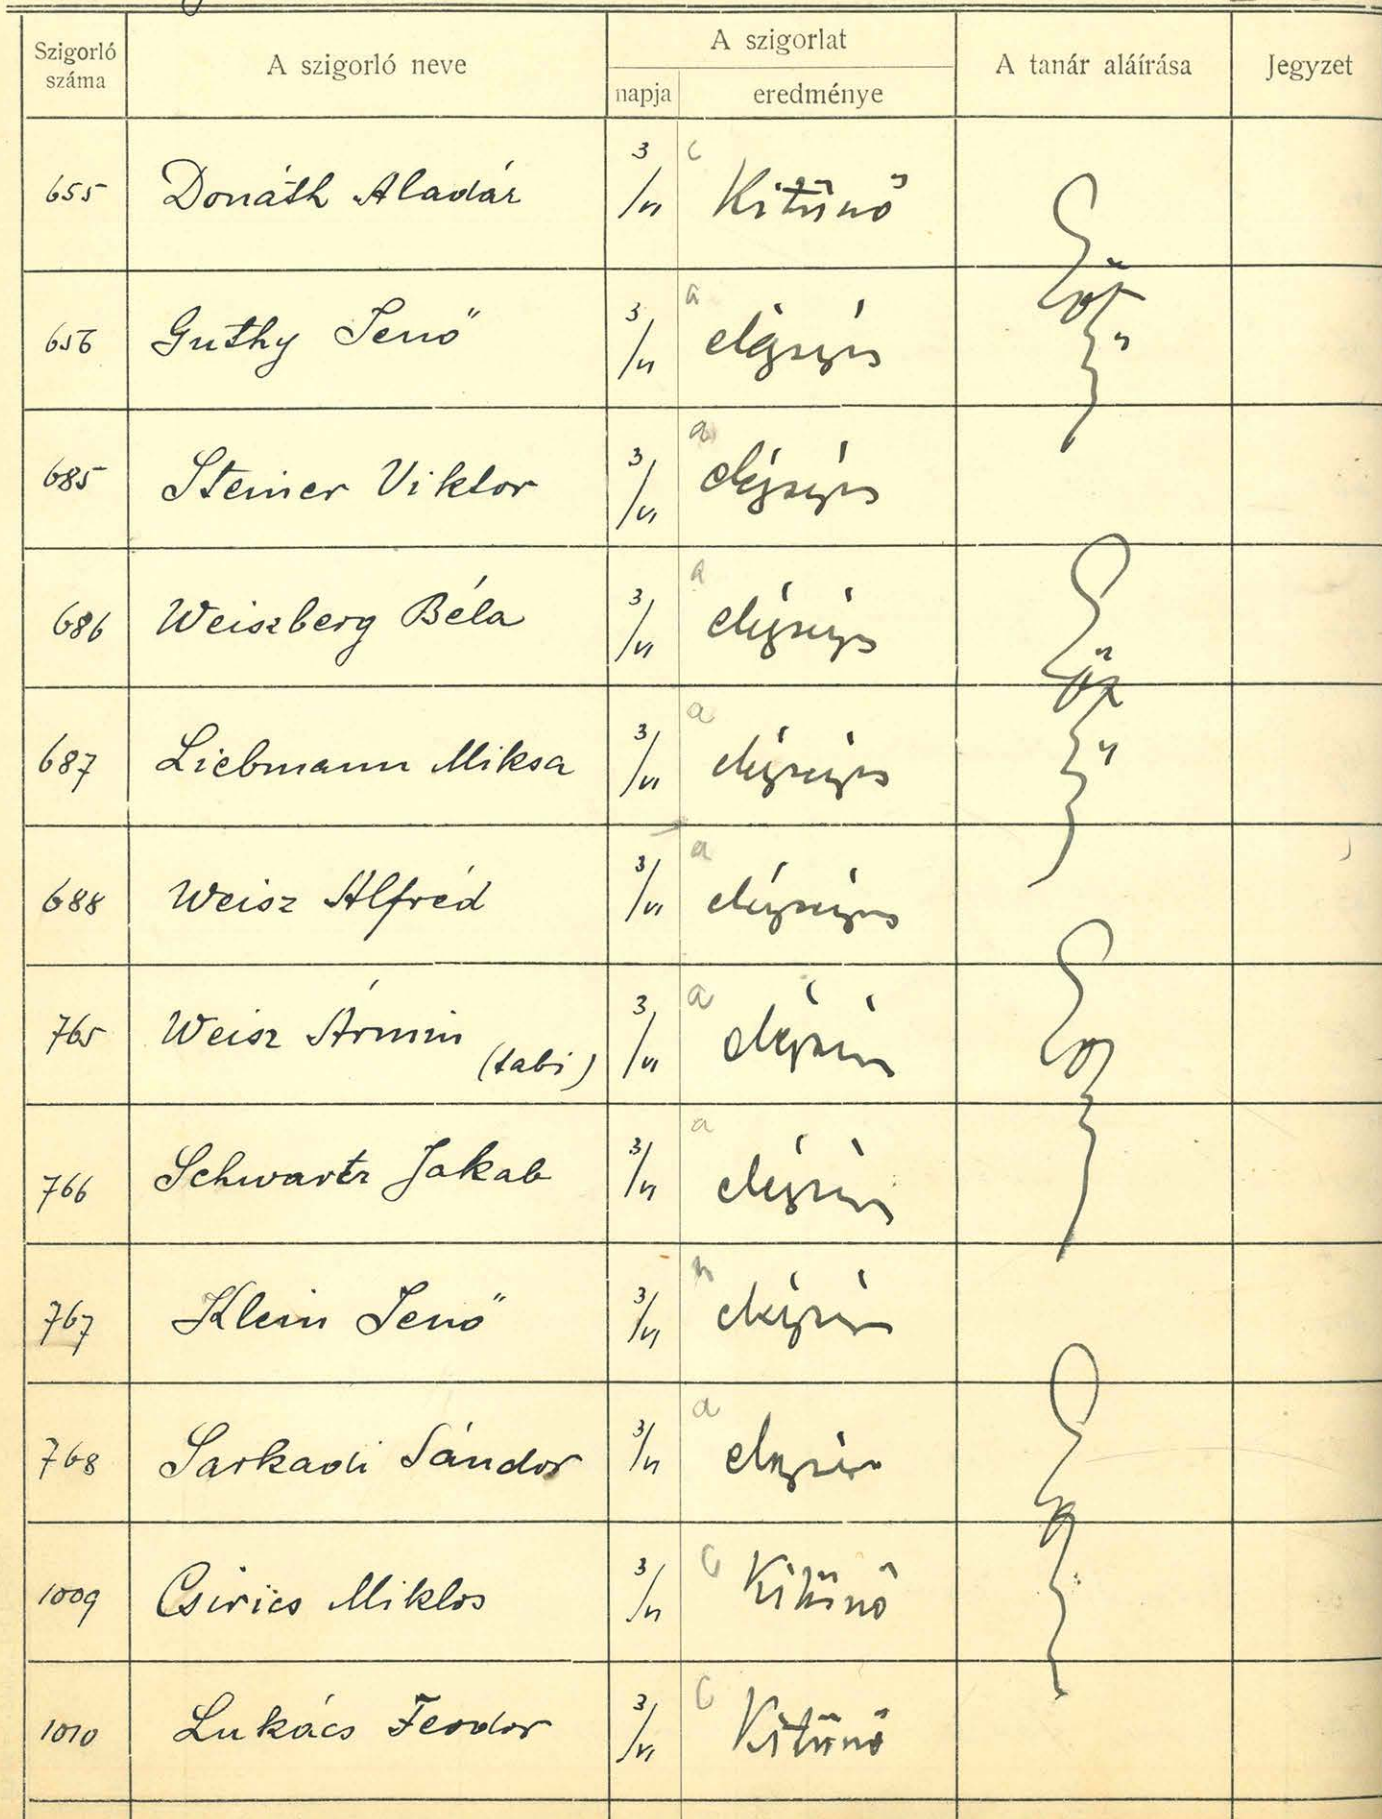 Szigorló száma
A szigorló neve
A szigorlat
napja
eredménye
A tanár aláírása
Jegyzet
655 Donáth Aladár 3/VI c Kitünő
656 Guthy Jenő 3/VI a elégséges
685 Steiner Viktor 3/VI a elégséges
686 Weiszberg Béla 3/VI a elégséges
687 Liebmann Miksa 3/VI a elégséges
688 Weisz Alfréd 3/VI a elégséges
765 Weisz Ármin (tabi) 3/VI a elégséges
766 Schwartz Jakab 3/VI a elégséges
767 Klein Jenő 3/VI elégséges
768 Sarkadi Sándor 3/VI a elégséges
1009 Csirics Miklos 3/VI c Kitünő
1010 Lukács Feodor 3/VI c Kitünő